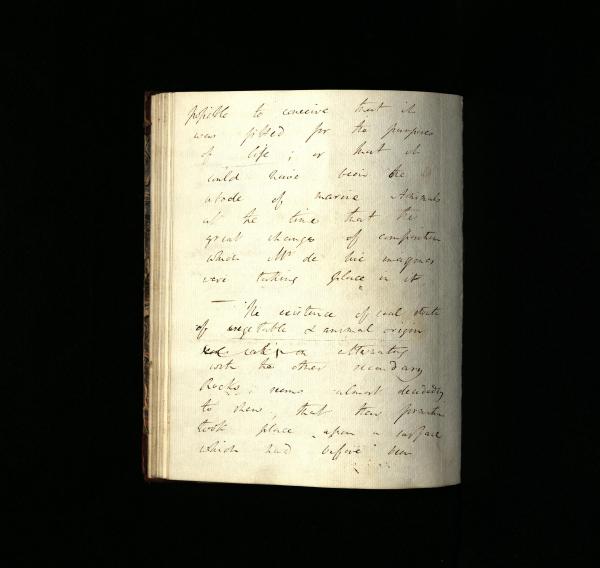 possible to conceive that it
was fitted for the purposes
of life; or that it
could have been the
abode of marine Animals
at the time that the
great changes of composition
which Mr de Luc imagines
were taking place in it
— The existence of coal strata
of vegetable & animal origin
alternating
with the other secondary
Rocks; seems almost decidedly
to shew, that their formation
took place upon a surface
which had before been